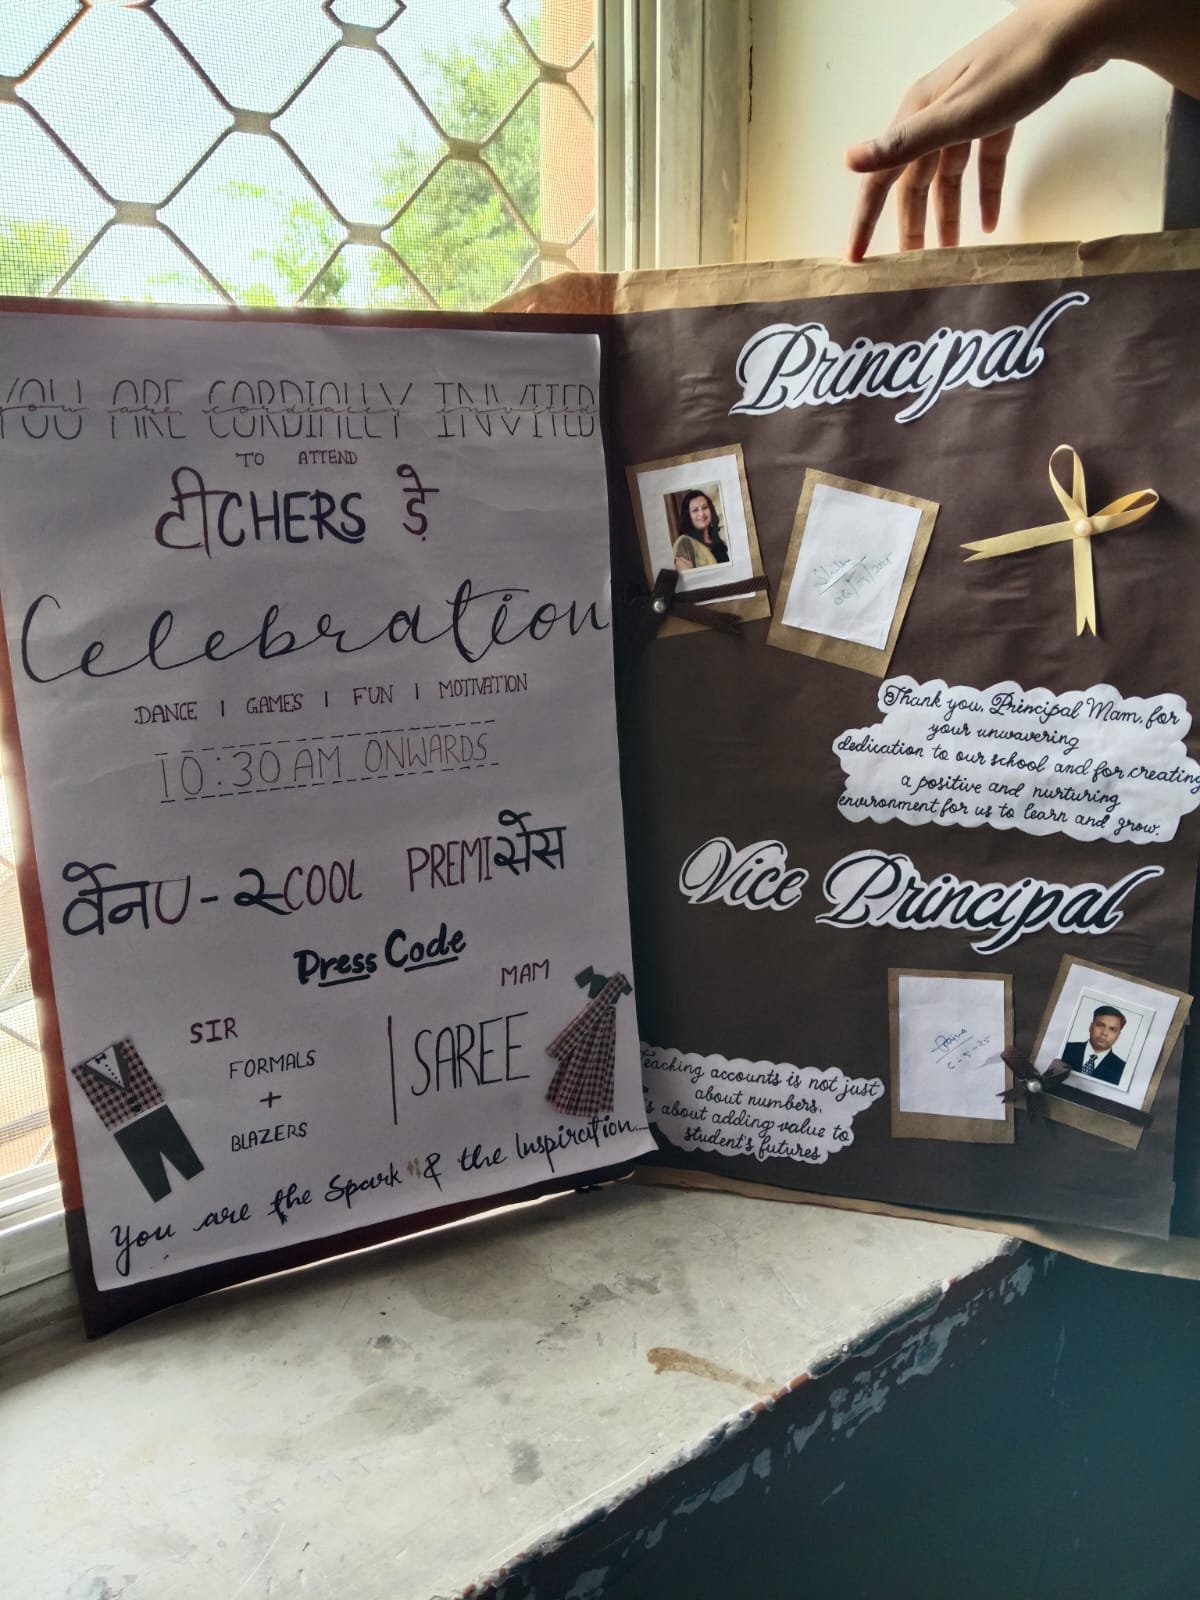 YOU ARE CORDIALLY INVITED
you are cordially invited
TO ATTEND
टीCHERS डे
Celebration
DANCE | GAMES | FUN | MOTIVATION
10:30 AM ONWARDS
वेनU - स्COOL PREMIसेस
Dress Code
SIR
FORMALS
+
BLAZERS
MAM
SAREE
You are the Spark & the Inspiration....
Principal
Thank you, Principal Mam, for
your unwavering
dedication to our school and for creating
a positive and nurturing
environment for us to learn and grow.
Vice Principal
Teaching accounts is not just
about numbers,
about adding value to
student's futures